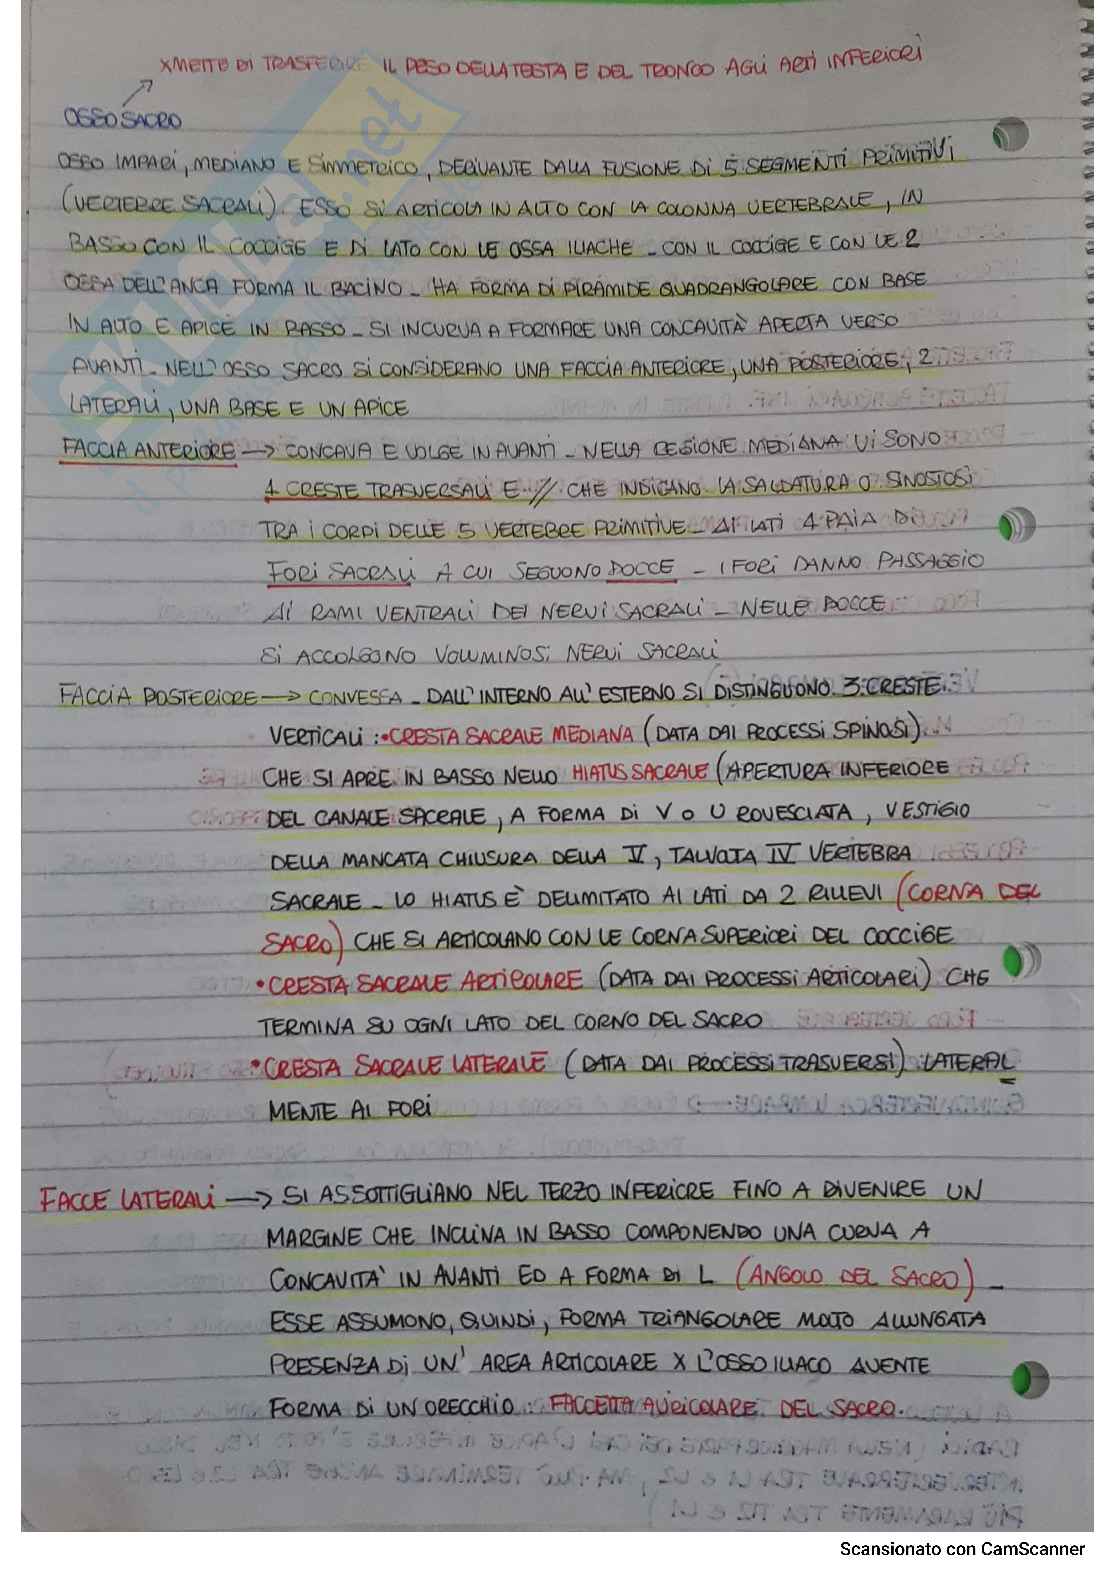 XMETTE DI TRASFERIRE IL PESO DELLA TESTA E DEL TRONCO AGLI ARTI INFERIORI
OSSO SACRO
OSSO IMPARI, MEDIANO E SIMMETRICO, DERIVANTE DALLA FUSIONE DI 5 SEGMENTI PRIMITIVI
(VERTEBRE SACRALI). ESSO SI ARTICOLA IN ALTO CON LA COLONNA VERTEBRALE, IN
BASSO CON IL COCCIGE E DI LATO CON LE OSSA ILIACHE - CON IL COCCIGE E CON LE 2
OSSA DELL'ANCA FORMA IL BACINO - HA FORMA DI PIRAMIDE QUADRANGOLARE CON BASE
IN ALTO E APICE IN BASSO - SI INCURVA A FORMARE UNA CONCAVITÀ APERTA VERSO
AVANTI - NELL'OSSO SACRO SI CONSIDERANO UNA FACCIA ANTERIORE, UNA POSTERIORE, 2
LATERALI, UNA BASE E UN APICE
FACCIA ANTERIORE → CONCAVA E VOLGE IN AVANTI - NELLA REGIONE MEDIANA VI SONO
4 CRESTE TRASVERSALI E // CHE INDICANO LA SALDATURA O SINOSTOSI
TRA I CORPI DELLE 5 VERTEBRE PRIMITIVE - AI LATI 4 PAIA DI
FORI SACRALI A CUI SEGUONO DOCCE - I FORI DANNO PASSAGGIO
AI RAMI VENTRALI DEI NERVI SACRALI - NELLE DOCCE
SI ACCOLGONO VOLUMINOSI NERVI SACRALI
FACCIA POSTERIORE → CONVESSA - DALL'INTERNO ALL'ESTERNO SI DISTINGUONO 3 CRESTE
VERTICALI: • CRESTA SACRALE MEDIANA (DATA DAI PROCESSI SPINOSI)
CHE SI APRE IN BASSO NELLO HIATUS SACRALE (APERTURA INFERIORE
DEL CANALE SACRALE, A FORMA DI V O U ROVESCIATA, VESTIGIO
DELLA MANCATA CHIUSURA DELLA V, TALVOLTA IV VERTEBRA
SACRALE - LO HIATUS È DELIMITATO AI LATI DA 2 RILIEVI (CORNA DEL
SACRO) CHE SI ARTICOLANO CON LE CORNA SUPERIORI DEL COCCIGE
• CRESTA SACRALE ARTICOLARE (DATA DAI PROCESSI ARTICOLARI) CHE
TERMINA SU OGNI LATO DEL CORNO DEL SACRO
• CRESTA SACRALE LATERALE (DATA DAI PROCESSI TRASVERSI) LATERAL
MENTE AI FORI
FACCE LATERALI → SI ASSOTTIGLIANO NEL TERZO INFERIORE FINO A DIVENIRE UN
MARGINE CHE INCLINA IN BASSO COMPONENDO UNA CURVA A
CONCAVITA' IN AVANTI ED A FORMA DI L (ANGOLO DEL SACRO) -
ESSE ASSUMONO, QUINDI, FORMA TRIANGOLARE MOLTO ALLUNGATA
PRESENZA DI UN'AREA ARTICOLARE X L'OSSO ILIACO AVENTE
FORMA DI UN ORECCHIO: FACCETTA AURICOLARE DEL SACRO.
SKUOLA.net
Scansionato con CamScanner